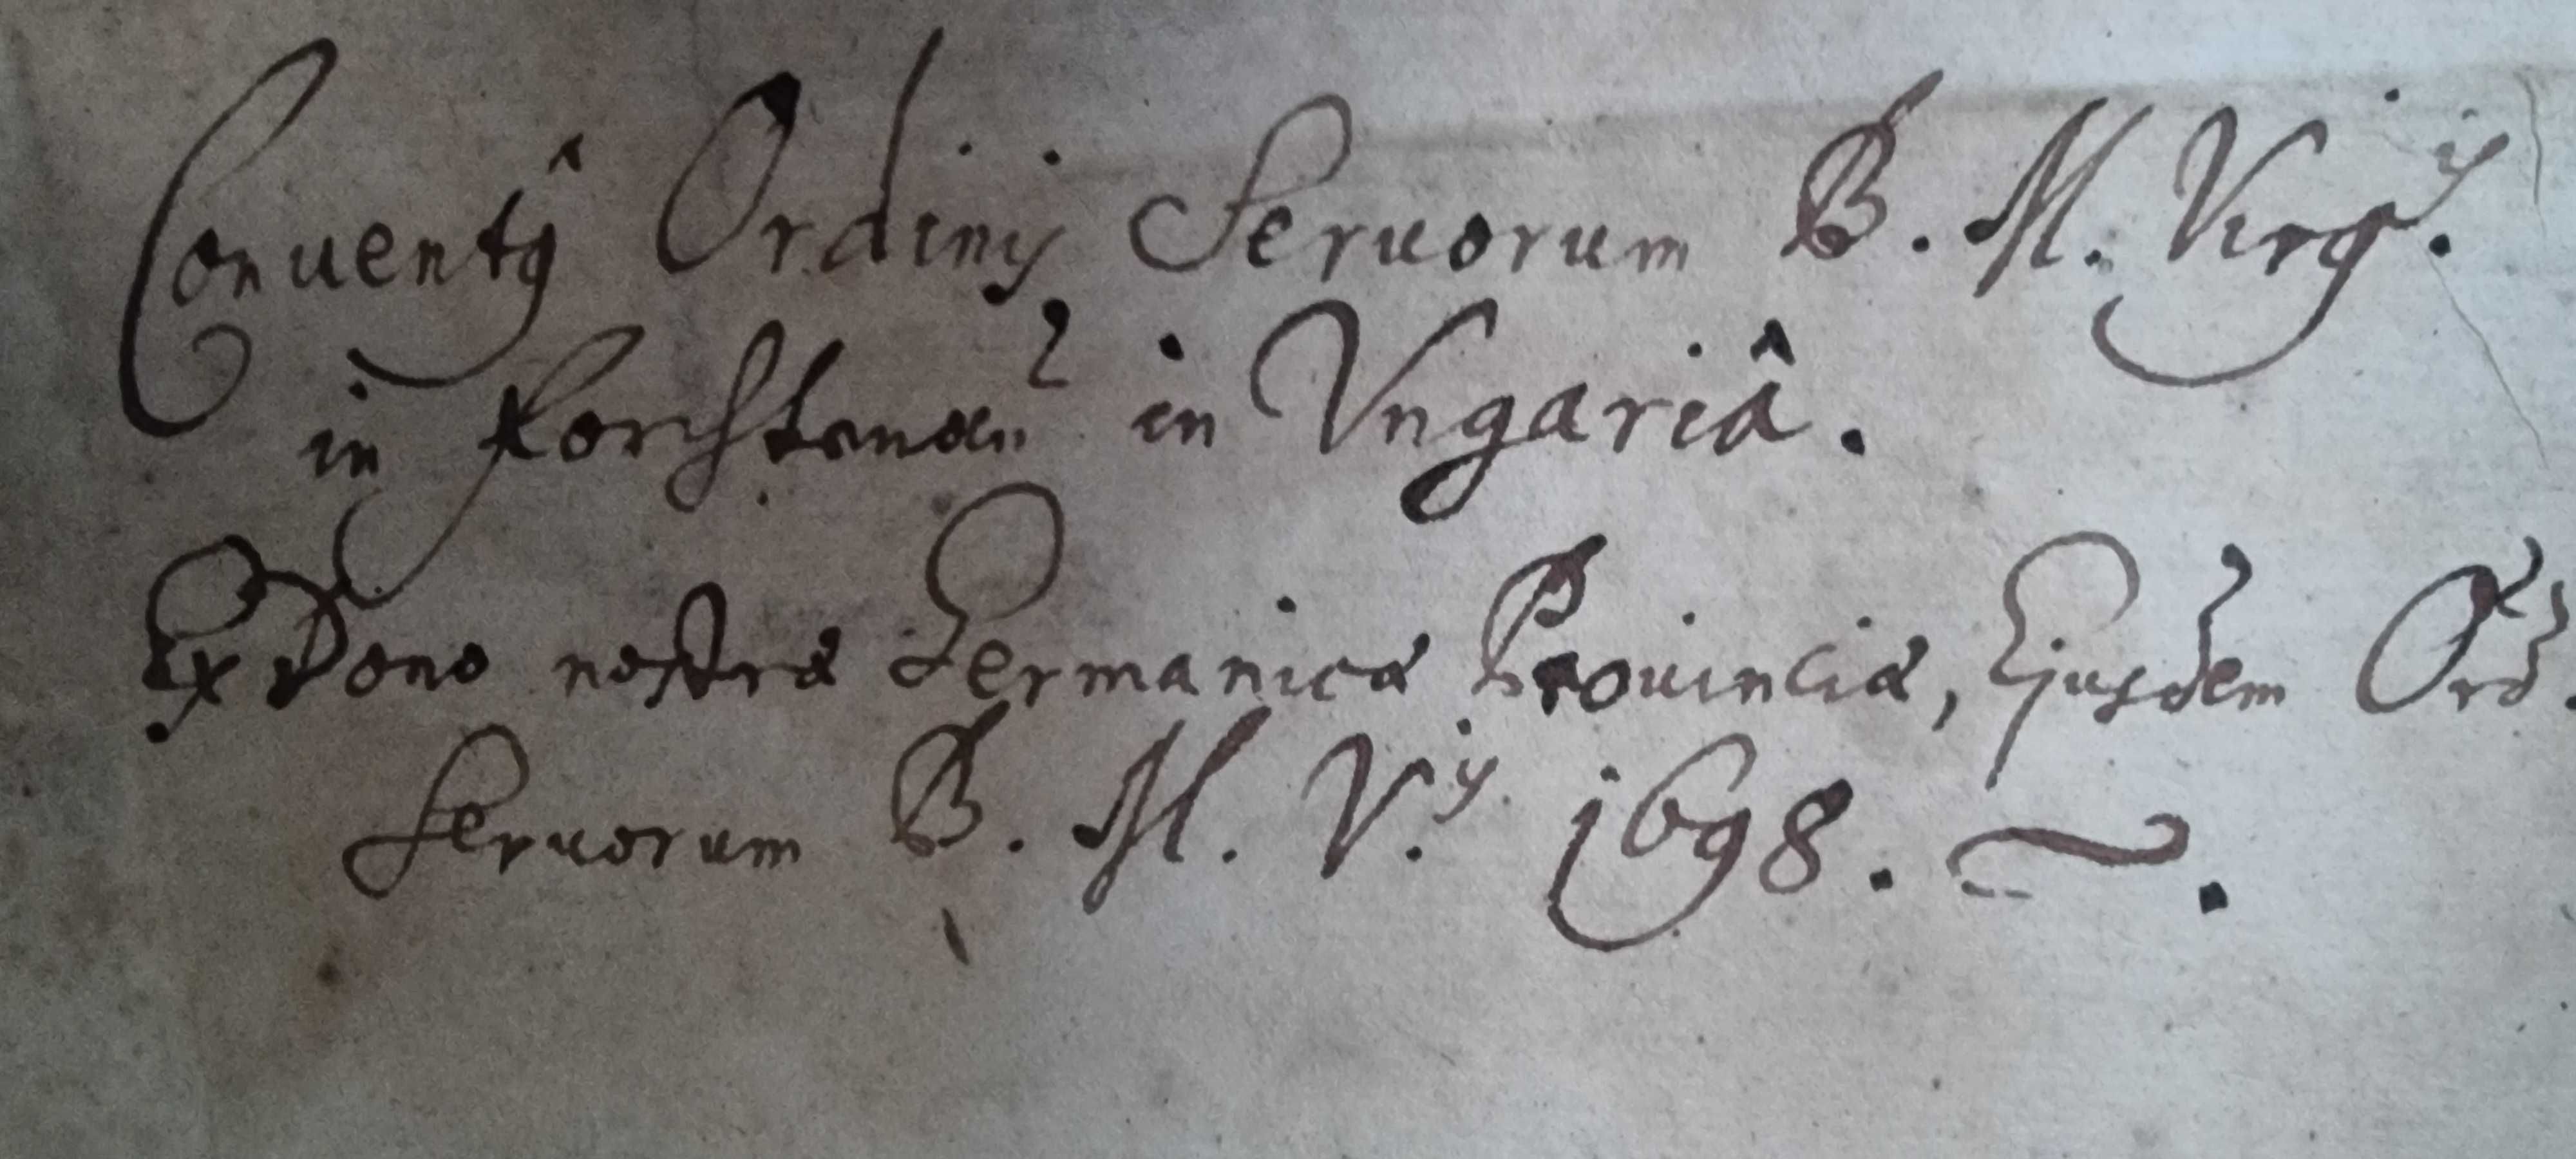 Conventûs Ordinis Seruorum B. M. Virgis.
in Forchtenau in Vngariâ.
Ex Dono nostræ Germanicæ Prouinciæ, Ejusdem Ord.
Seruorum B. M. V.is 1698.